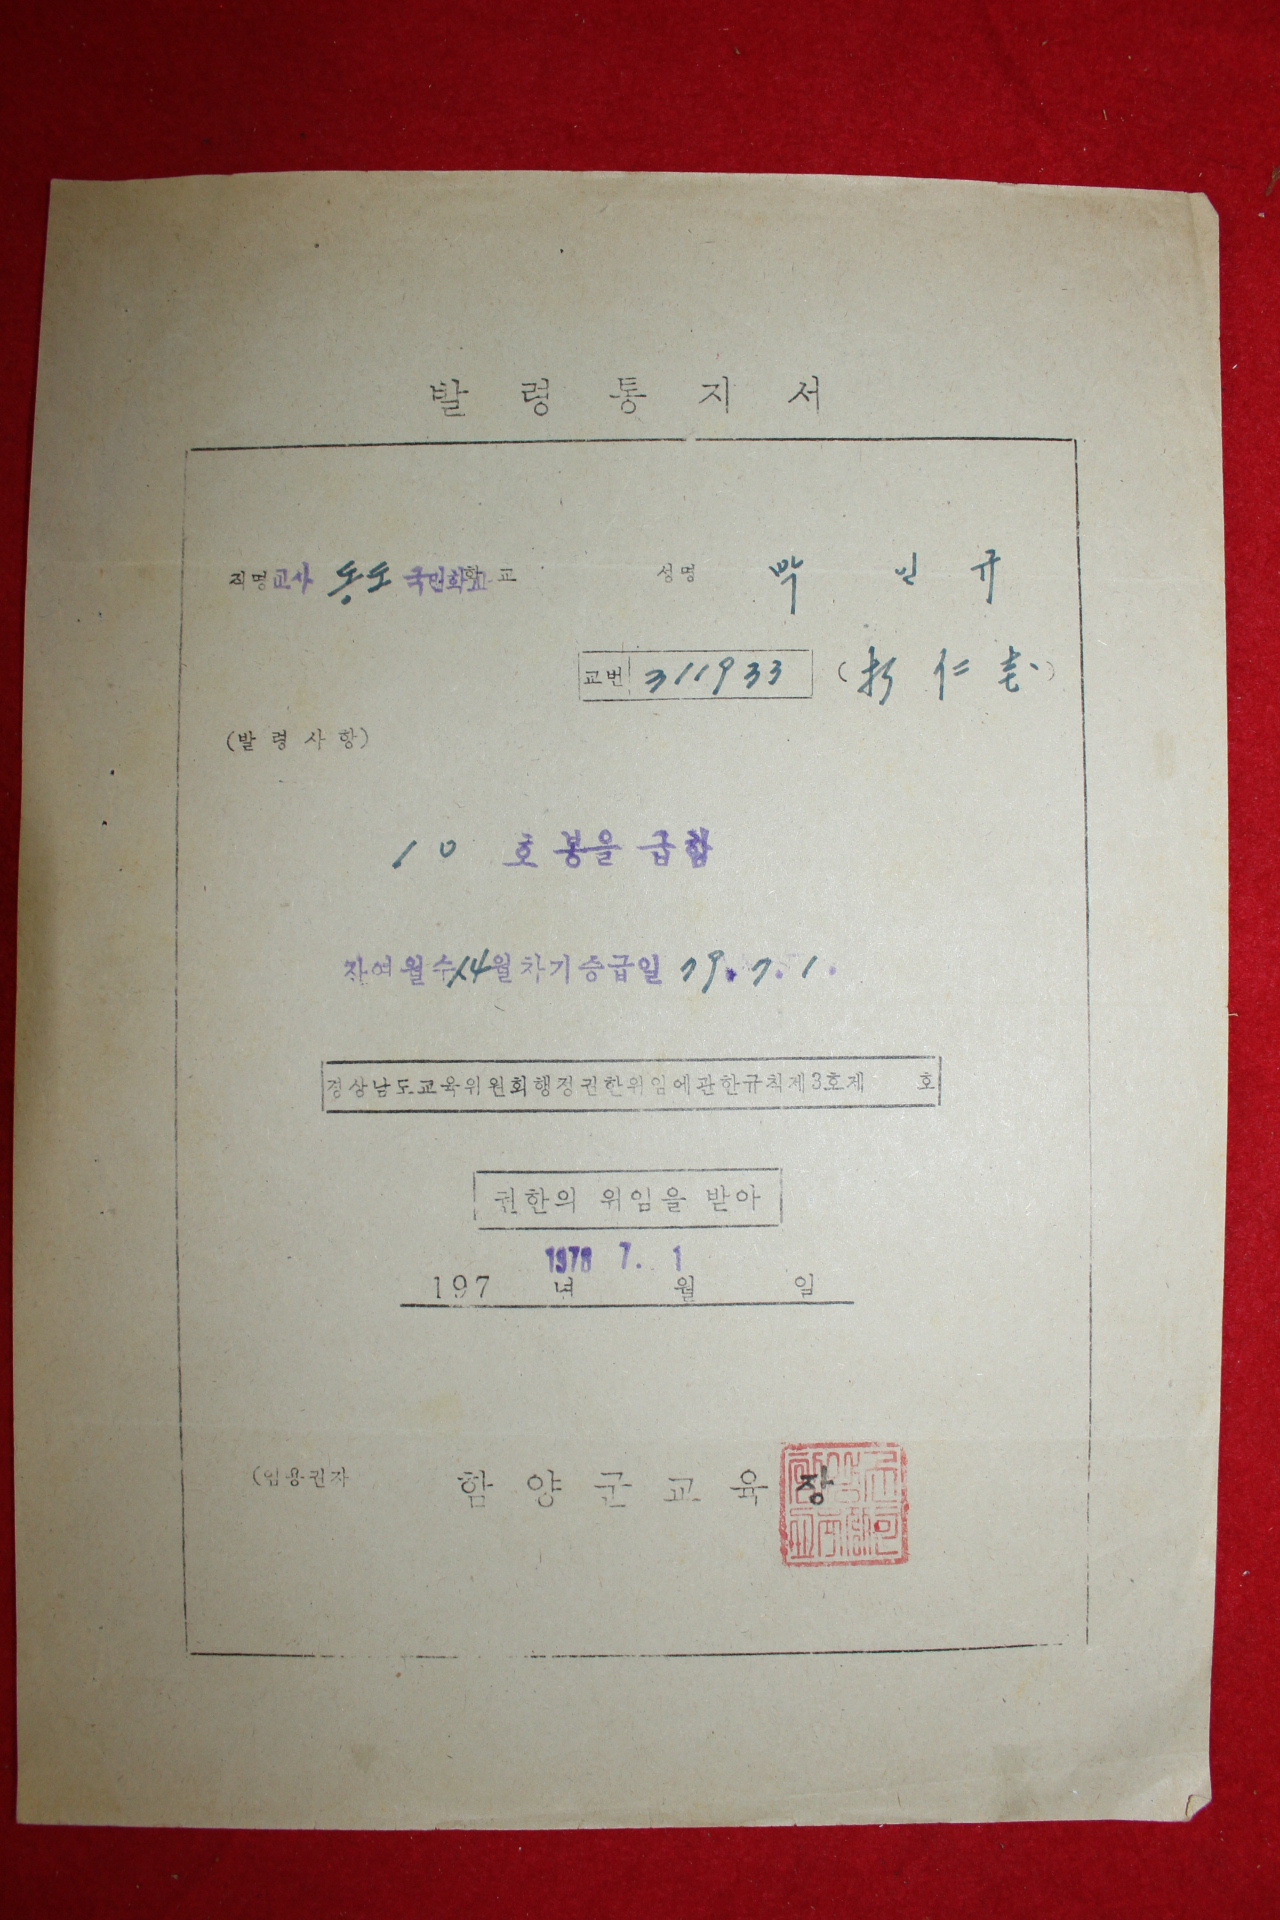 발령통지서
직명 교사 동도 국민학교 학교 성명 박인규
교번 311933 (朴仁圭)
(발령사항)
10 호봉을 급함
잔여월수 14월 차기승급일 79.7.1.
경상남도교육위원회행정권한위임에관한규칙제3호제 호
권한의 위임을 받아
1978 7. 1
197 년 월 일
(임용권자 함양군교육장